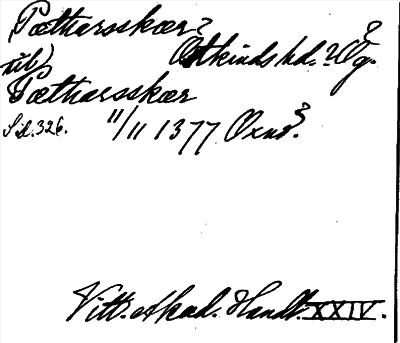 Pætharsskær?
Østkinds hd. ? Ög.
till)
Pætharsskær
Sid. 326. 11/11 1377 Oxnö?
Vitt. Akad. Handl. XXIV.